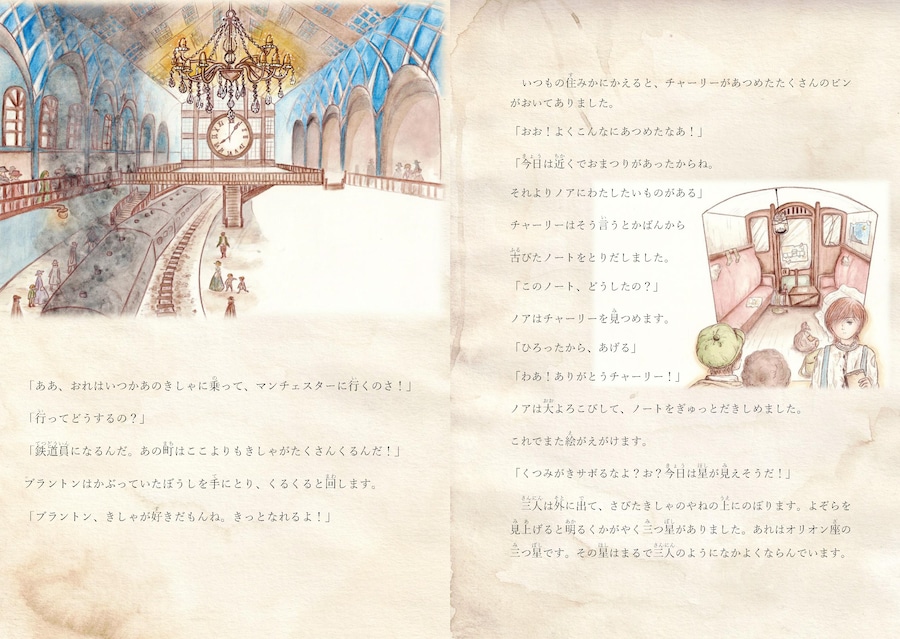 「ああ、おれはいつかあのきしゃに乗って、マンチェスターに行くのさ！」
「行ってどうするの？」
「鉄道員になるんだ。あの町はここよりもきしゃがたくさんくるんだ！」
ブラントンはかぶっていたぼうしを手にとり、くるくると回します。
「ブラントン、きしゃが好きだもんね。きっとなれるよ！」
いつもの住みかにかえると、チャーリーがあつめたたくさんのビン
がおいてありました。
「おお！よくこんなにあつめたなあ！」
「今日は近くでおまつりがあったからね。
それよりノアにわたしたいものがある」
チャーリーはそう言うとかばんから
古びたノートをとりだしました。
「このノート、どうしたの？」
ノアはチャーリーを見つめます。
「ひろったから、あげる」
「わあ！ありがとうチャーリー！」
ノアは大よろこびして、ノートをぎゅっとだきしめました。
これでまた絵がえがけます。
「くつみがきサボるなよ？お？今日は星が見えそうだ！」
三人は外に出て、さびたきしゃのやねの上にのぼります。よぞらを
見上げると明るくかがやく三つ星がありました。あれはオリオン座の
三つ星です。その星はまるで三人のようになかよくならんでいます。